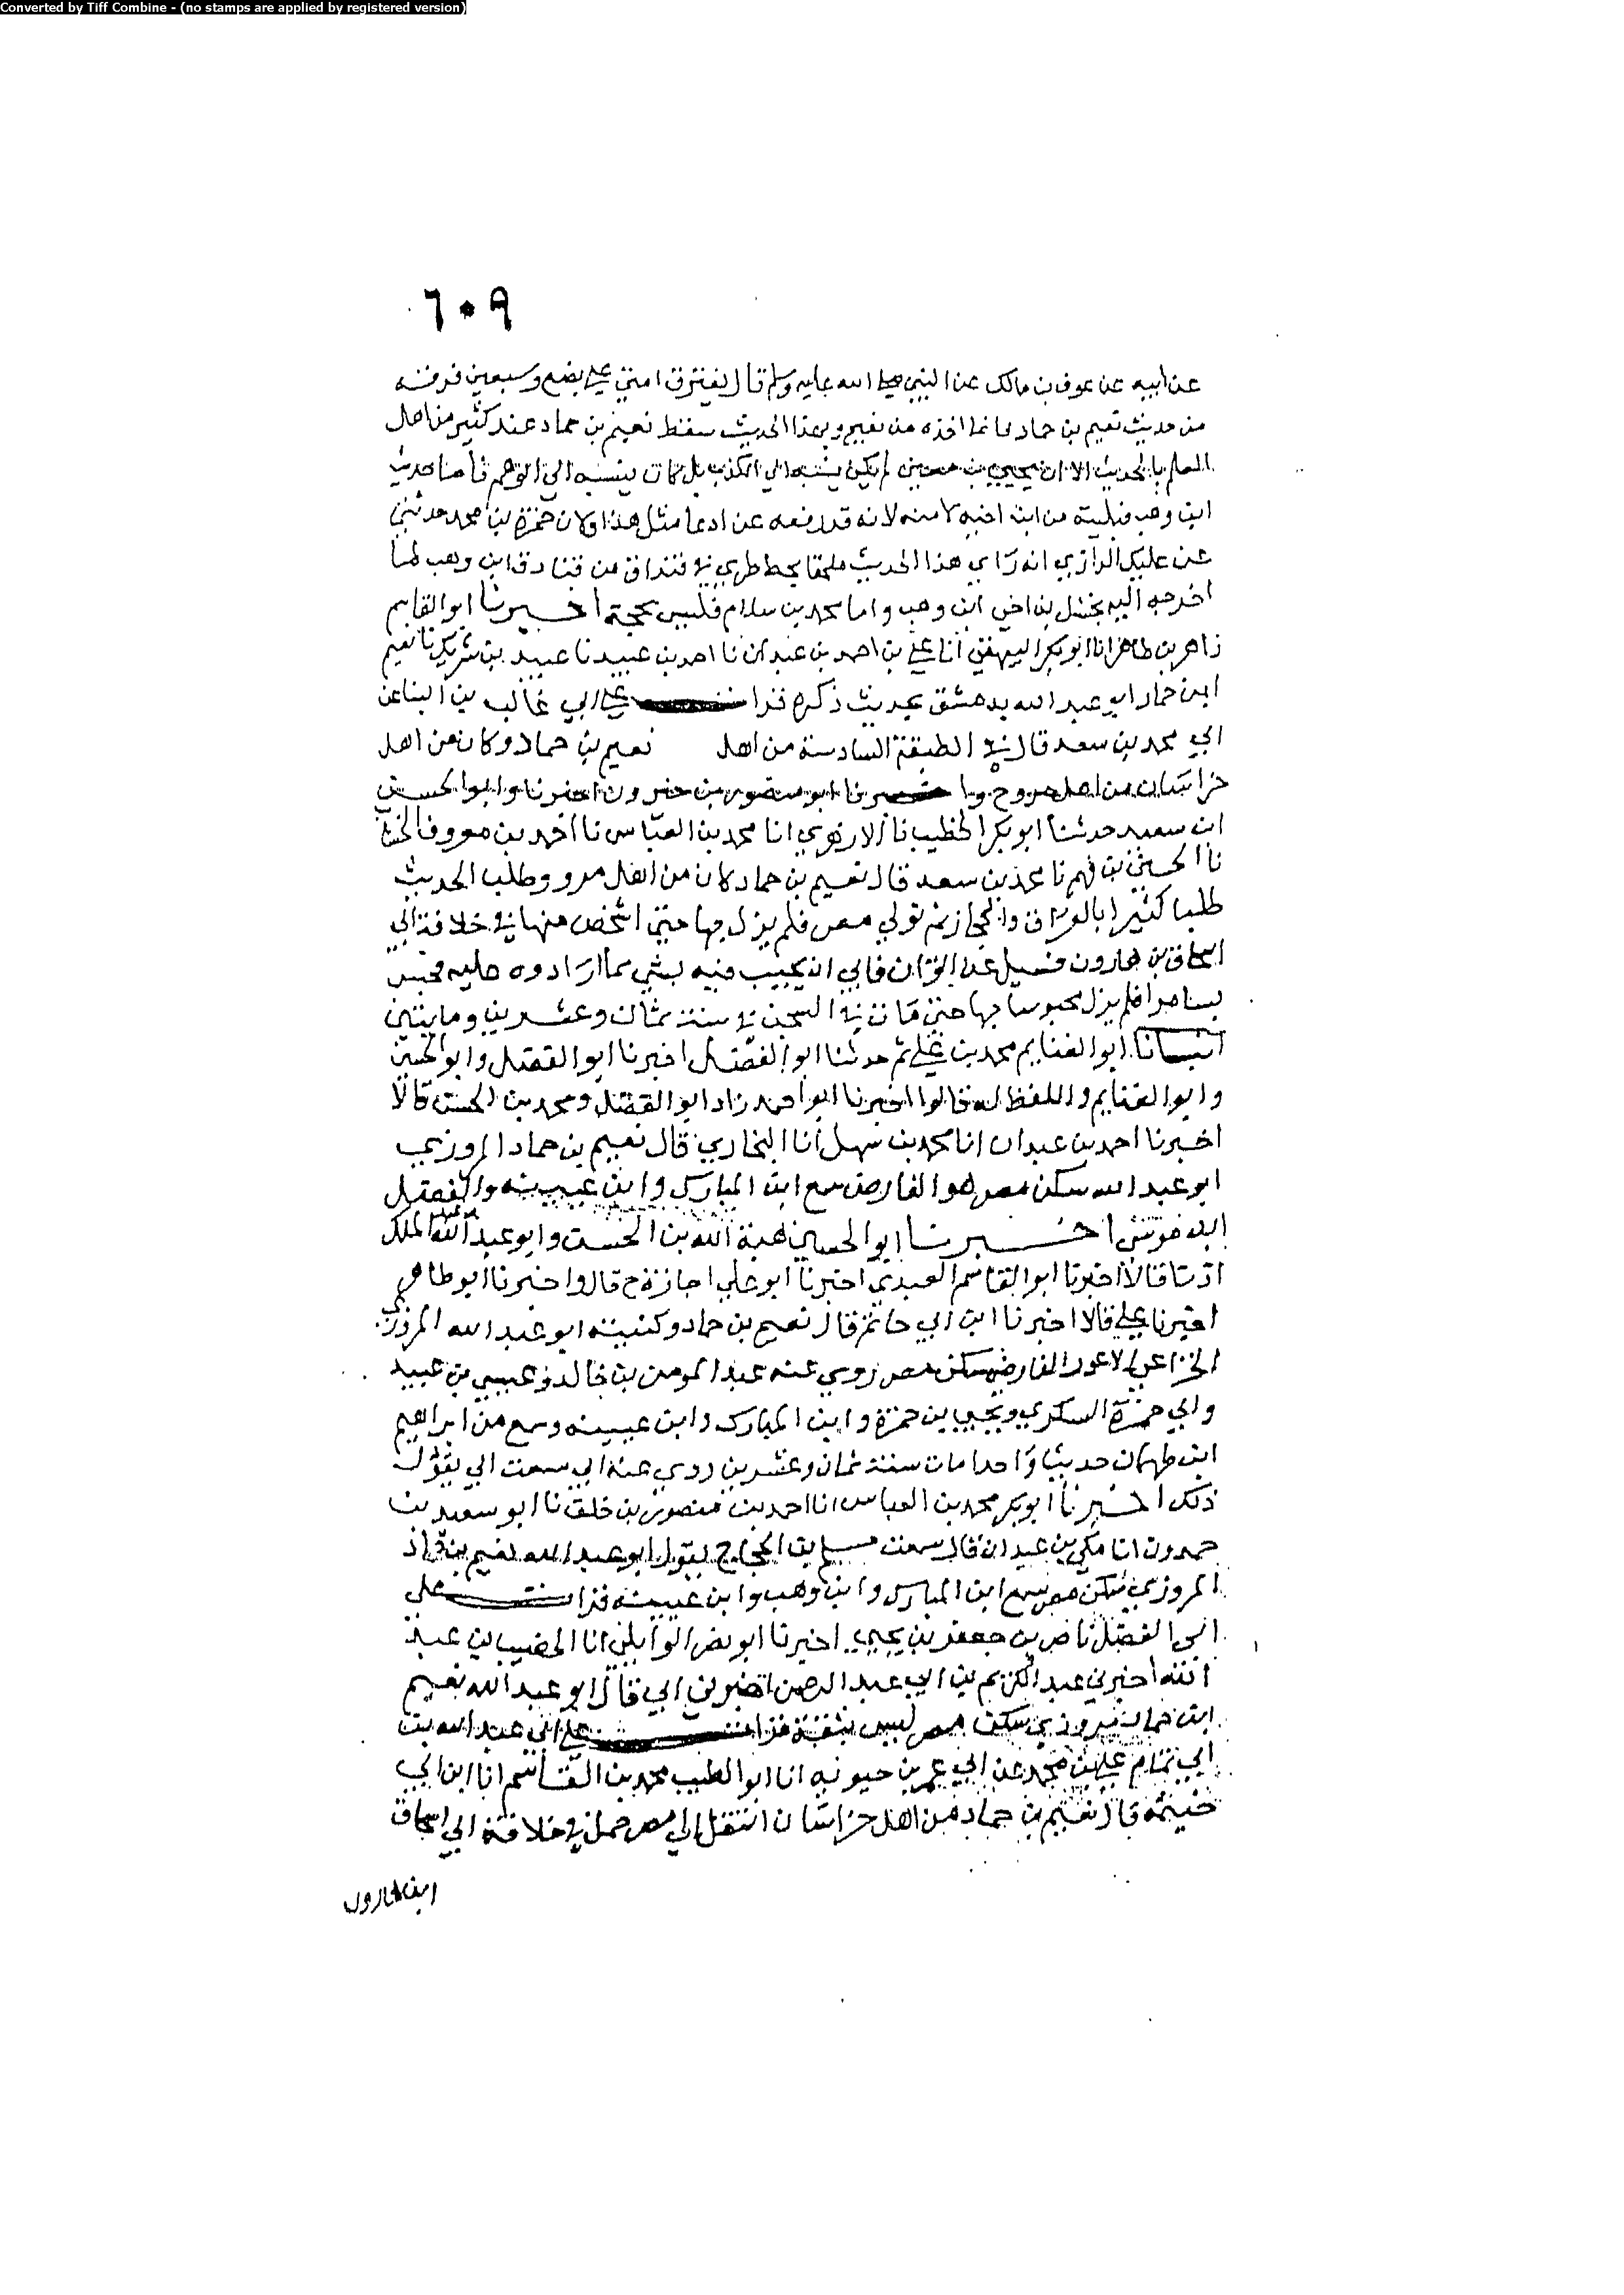 Converted by Tiff Combine - (no stamps are applied by registered version)
٦٠٩
عن ابيه عن عوف بن مالك عن النبي صلى الله عليه وسلم قال تفترق امتي على بضع وسبعين فرقة
من حديث نعيم بن حماد فانما اخذه من نعيم وبهذا الحديث سقط نعيم بن حماد عند كثير من اهل
العلم بالحديث الا ان يحيى بن معين لم يكن ينسبه الى الكذب بل كان ينسبه الى الوهم فأما حديث
ابن وهب فبليته من ابن اخيه لا منه لانه قد رفعه عن ادعا مثل هذا ولان حمزة بن محمد حدثني
عن عليك الرازي انه راي هذا الحديث ملحقا بخط طري في قنداق من قنادق ابن وهب لما
اخرجه اليه بحشل بن اخي ابن وهب واما محمد بن سلام فليس بحجة اخبرنا ابو القاسم
زاهر بن طاهر انا ابو بكر البيهقي أنا علي بن احمد بن عبدان نا احمد بن عبيد نا عبيد بن شريك نا نعيم
ابن حماد ابو عبد الله بدمشق بحديث ذكره قرات على ابي غالب بن البنا عن
ابي محمد بن سعد قال في الطبقة السادسة من اهل نعيم بن حماد وكان من اهل
خراسان من اهل مرو ح واخبرنا ابو منصور بن خيرون اخبرنا وابو الحسن
ابن سعيد حدثنا ابو بكر الخطيب نا الازهري انا محمد بن العباس نا احمد بن معروف الخشاب
نا الحسين بن فهم نا محمد بن سعد قال نعيم بن حماد كان من اهل مرو وطلب الحديث
طلبا كثيرا بالعراق والحجاز ثم نزل مصر فلم يزل بها حتى اشخص منها في خلافة ابي
اسحاق بن هارون فسيل عن القران فابي ان يجيب فيه بشي مما ارادوه عليه فحبس
بسامرا فلم يزل محبوسا بها حتى مات في السجن في سنة ثمان وعشرين ومايتين
انبانا ابو الغنايم محمد بن علي ثم حدثنا ابو الفضل اخبرنا ابو الفضل وابو الحسين
وابو الغنايم واللفظ له قالوا اخبرنا ابو احمد زاد ابو الفضل ومحمد بن الحسن قالا
اخبرنا احمد بن عبدان انا محمد بن سهل أنا البخاري قال نعيم بن حماد المروزي
ابو عبد الله سكن مصر هو الفارض سمع ابن المبارك وابن عيينه والفضل
ابن موسى اخبرنا ابو الحسين هبة الله بن الحسن وابو عبد الله الملك
اذنا قالا اخبرنا ابو القاسم العبدي اخبرنا ابو علي اجازة ح قالوا اخبرنا ابو طاهر
اخبرنا علي قالا اخبرنا ابن ابي حاتم قال نعيم بن حماد وكنيته ابو عبد الله المروزي
الخزاعي الاعور الفارض سكن مصر روي عنه عبد المومن بن خالد وعيسى بن عبيد
وابي حمزة السكري ويحيى بن حمزة وابن المبارك وابن عيينه وسمع من ابراهيم
ابن طهمان حديثا واحدا مات سنة ثمان وعشرين روي عنه ابي سمعت ابي يقول
ذلك اخبرنا ابو بكر محمد بن العباس انا احمد بن منصور بن خلف نا ابو سعيد بن
حمدون انا مكي بن عبدان قال سمعت مسلم بن الحجاج يقول ابو عبد الله نعيم بن حماد
المروزي سكن مصر سمع ابن المبارك وابن وهب وابن عيينه قرات على
ابي الفضل ناصر بن جعفر بن يحيى اخبرنا ابو نصر الوايلي انا الخصيب بن عبد
الله اخبرني عبد الكريم بن ابي عبد الرحمن اخبرني ابي قال ابو عبد الله نعيم
ابن حماد مروزي سكن مصر ليس بثقة قرات على ابي عبد الله بن
ابي تمام علي بن محمد عن ابي عمر بن حيويه انا ابو الطيب محمد بن القاسم انا ابن ابي
خيثمه قال نعيم بن حماد من اهل خراسان انتقل الي مصر حمل في خلافة ابي اسحاق
ابن هارون